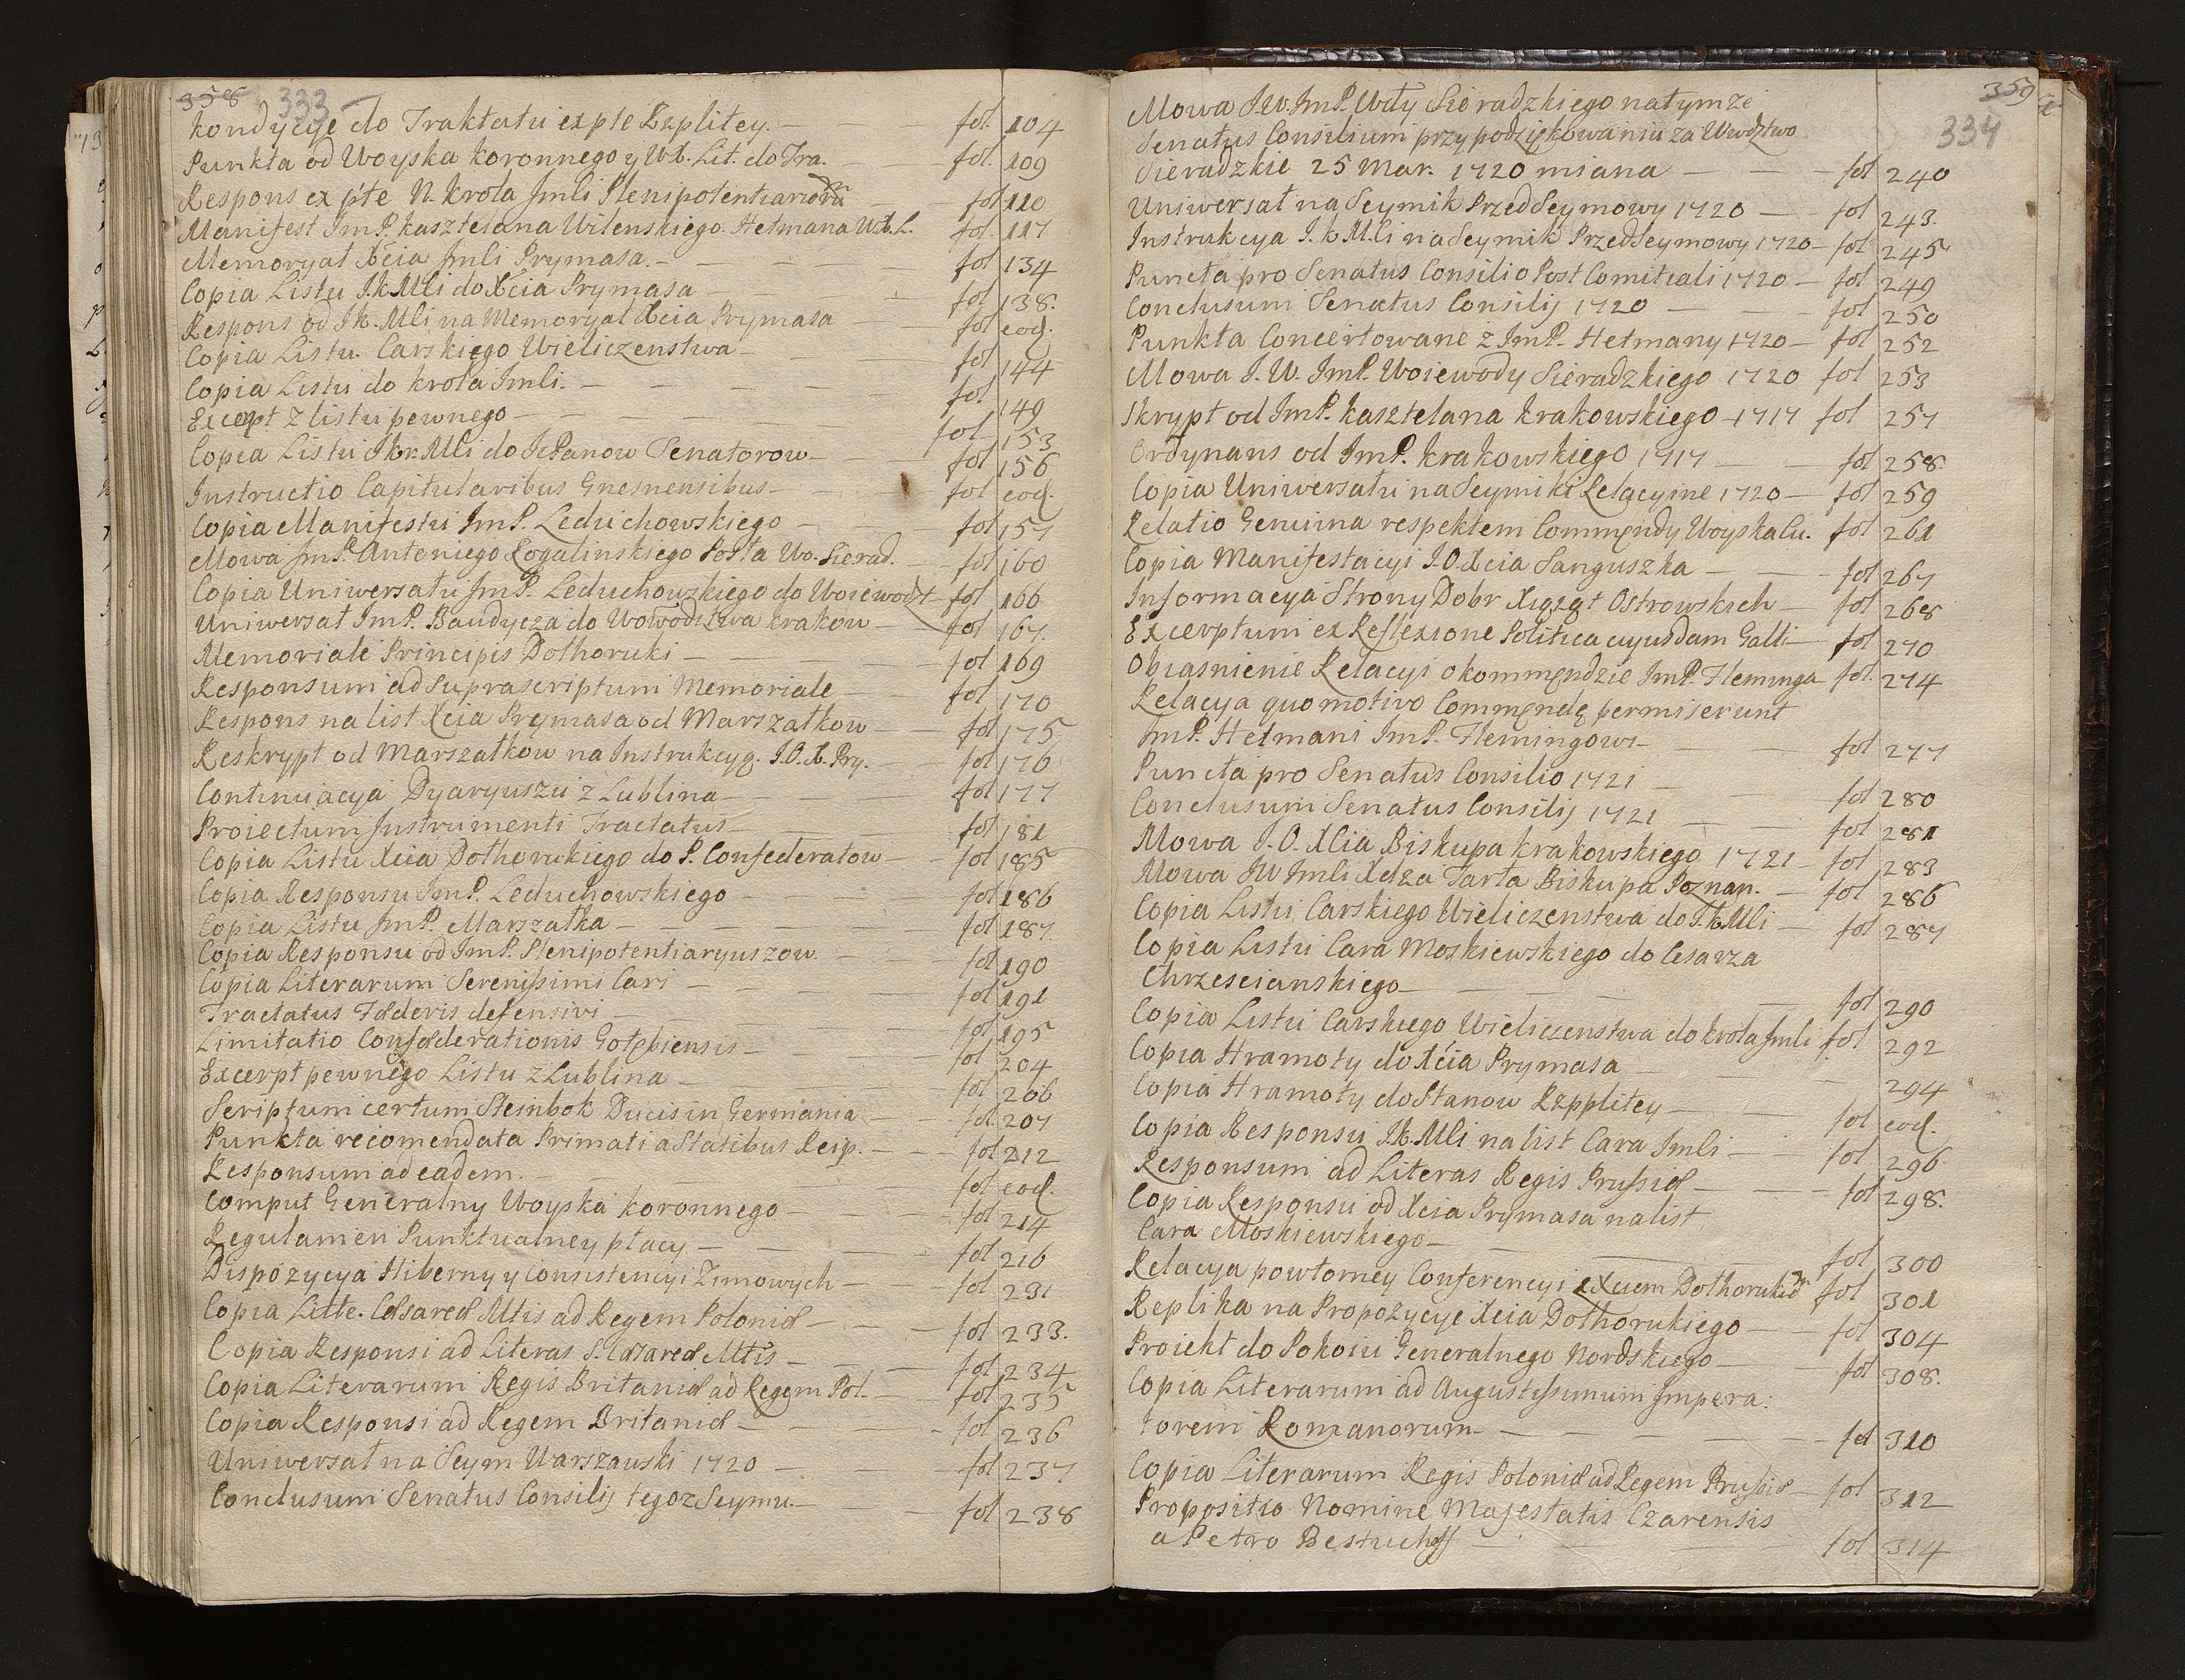 358 333
Kondycye do Traktatu ex pte Rzplitey. fol. 104
Punkta od Woyska Koronnego y WX. Lit. do Tra. fol. 109
Respons ex pte N. Krola Jmli Plenipotentiariorum fol 110
Manifest JmP. Kasztelana Wilenskiego. Hetmana WX.L. fol. 117
Memoryał Xcia Jmli Prymasa. fol 134
Copia Listu J.K.Mli do Xcia Prymasa fol 138.
Respons od J K. Mli na Memoryał Xcia Prymasa fol eod.
Copia Listu Carskiego Wieliczenstwa fol 144
Copia Listu do Krola Jmli. fol. 149
Excerpt z listu pewnego fol 153
Copia Listu J Kr. Mli do JchPanow Senatorow fol 156
Instructio Capitularibus Gnesnensibus fol eod.
Copia Manifestu JmP. Leduchowskiego fol 157
Mowa JmP. Antoniego Rogalinskiego Posła Wo. Sierad. fol 160
Copia Uniwersału JmP. Leduchowzkiego do Woiewodzt fol 166
Uniwersał JmP. Baudycza do Wowodztwa Krakow fol 167.
Memoriale Principis Dolhoruki fol 169
Responsum ad Suprascriptum Memoriale fol 170
Respons na list Xcia Prymasa od Marszałkow fol 175
Reskrypt od Marszałkow na Instrukcyą. J.O.X. Pry. fol 176
Continuacya Dyaryuszu z Lublina fol 177
Proiectum Instrumenti Tractatus fol 181
Copia Listu Xcia Dolhorukiego do P. Confederatow fol 185
Copia Responsu JmP. Leduchowskiego fol 186
Copia Listu JmP. Marszałka fol 187.
Copia Responsu od JmP. Plenipotentiaryuszow fol 190
Copia Literarum Serenissimi Cari fol 191
Tractatus Fœderis defensivi fol 195
Limitatio Confœderationis Gołębiensis fol 204
Excerpt pewnego Listu z Lublina fol 206
Scriptum certum Steinbok Ducis in Germania fol. 207
Punkta recomendata Primati a Statibus Reip. fol 212
Responsum ad eadem. fol eod.
Comput Generalny Woyska Koronnego fol 214
Regulamen Punktualney płacy fol 216
Dispozycya Hiberny y Consistencyi Zimowych fol 231
Copia Litte. Cæsareæ Mtis ad Regem Poloniæ fol 233.
Copia Responsi ad Literas S. Cæsareæ Mtis fol 234
Copia Literarum Regis Britaniæ ad Regem Pol. fol 235
Copia Responsi ad Regem Britaniæ fol 236
Uniwersał na Seym Warszawski 1720 fol 237
Conclusum Senatus Consilij tegoz Seymu. fol 238
359 334
Mowa J.W.JmP. Wdy Sieradzkiego na tymze
Senatus Consilium przy podziękowaniu za Wwdztwo
Sieradzkie 25 Mar. 1720 miana fol 240
Uniwersał na Seymik PrzedSeymowy 1720 fol 243.
Instrukcya J. K M.li na Seymik PrzedSeymowy 1720 fol 245
Puncta pro Senatus Consilio Post Comitiali 1720 fol 249
Conclusum Senatus Consilij 1720 fol 250
Punkta Concertowane z JmP. Hetmany 1720 fol 252
Mowa J. W. JmP. Woiewody Sieradzkiego 1720 fol 253
Skrypt od JmP. Kasztelana Krakowskiego 1717 fol 257
Ordynans od JmP. Krakowskiego 1717 fol 258.
Copia Uniwersału na Seymiki Relacyine 1720 fol 259
Relatio Genuina respektem Commendy Woyska Cu. fol 261
Copia Manifestacyi J.O.Xcia Sanguszka fol 267
Informacya Strony Dobr Xiążąt Ostrowskich fol 268
Excerptum ex Reflexione Politica cuyusdam Galli fol 270
Obiasnienie Relacyi o kommendzie JmP. Fleminga fol. 274
Relacya quo motivo Commendę permiserunt
JmP. Hetmani JmP. Flemingowi fol 277
Puncta pro Senatus Consilio 1721 fol 280
Conclusum Senatus Consilij 1721 fol 281
Mowa J. O. XCia Biskupa Krakowskiego 1721 fol 283
Mowa JW Jmli Xdza Tarła Biskupa Poznan. fol 286
Copia Listu Carskiego Wieliczenstwa do J.K.Mli fol 287
Copia Listu Cara Moskiewskiego do Cesarza
Chrzescianskiego fol 290
Copia Listu Carskiego Wieliczenstwa do Krola Jmli fol 292
Copia Hramoty do Xcia Prymasa 294
Copia Hramoty do Stanow Rzpplitey fol eod.
Copia Responsu J.K.Mli na list Cara Jmli fol 296
Responsum ad Literas Regis Prussiæ fol 298.
Copia Responsu od Xcia Prymasa na list
Cara Moskiewskiego fol 300
Relacya powtorney Conferencyi z Xciem Dolhorukim fol 301
Replika na Propozycye Xcia Dolhorukiego fol 304
Proiekt do Pokoiu Generalnego Nordskiego fol 308.
Copia Literarum ad Augustissimum Impera:
torem Romanorum fol 310
Copia Literarum Regis Poloniæ ad Regem Prussiæ fol 312
Propositio Nomine Majestatis Czarensis
a Petro Bestucheff fol 314